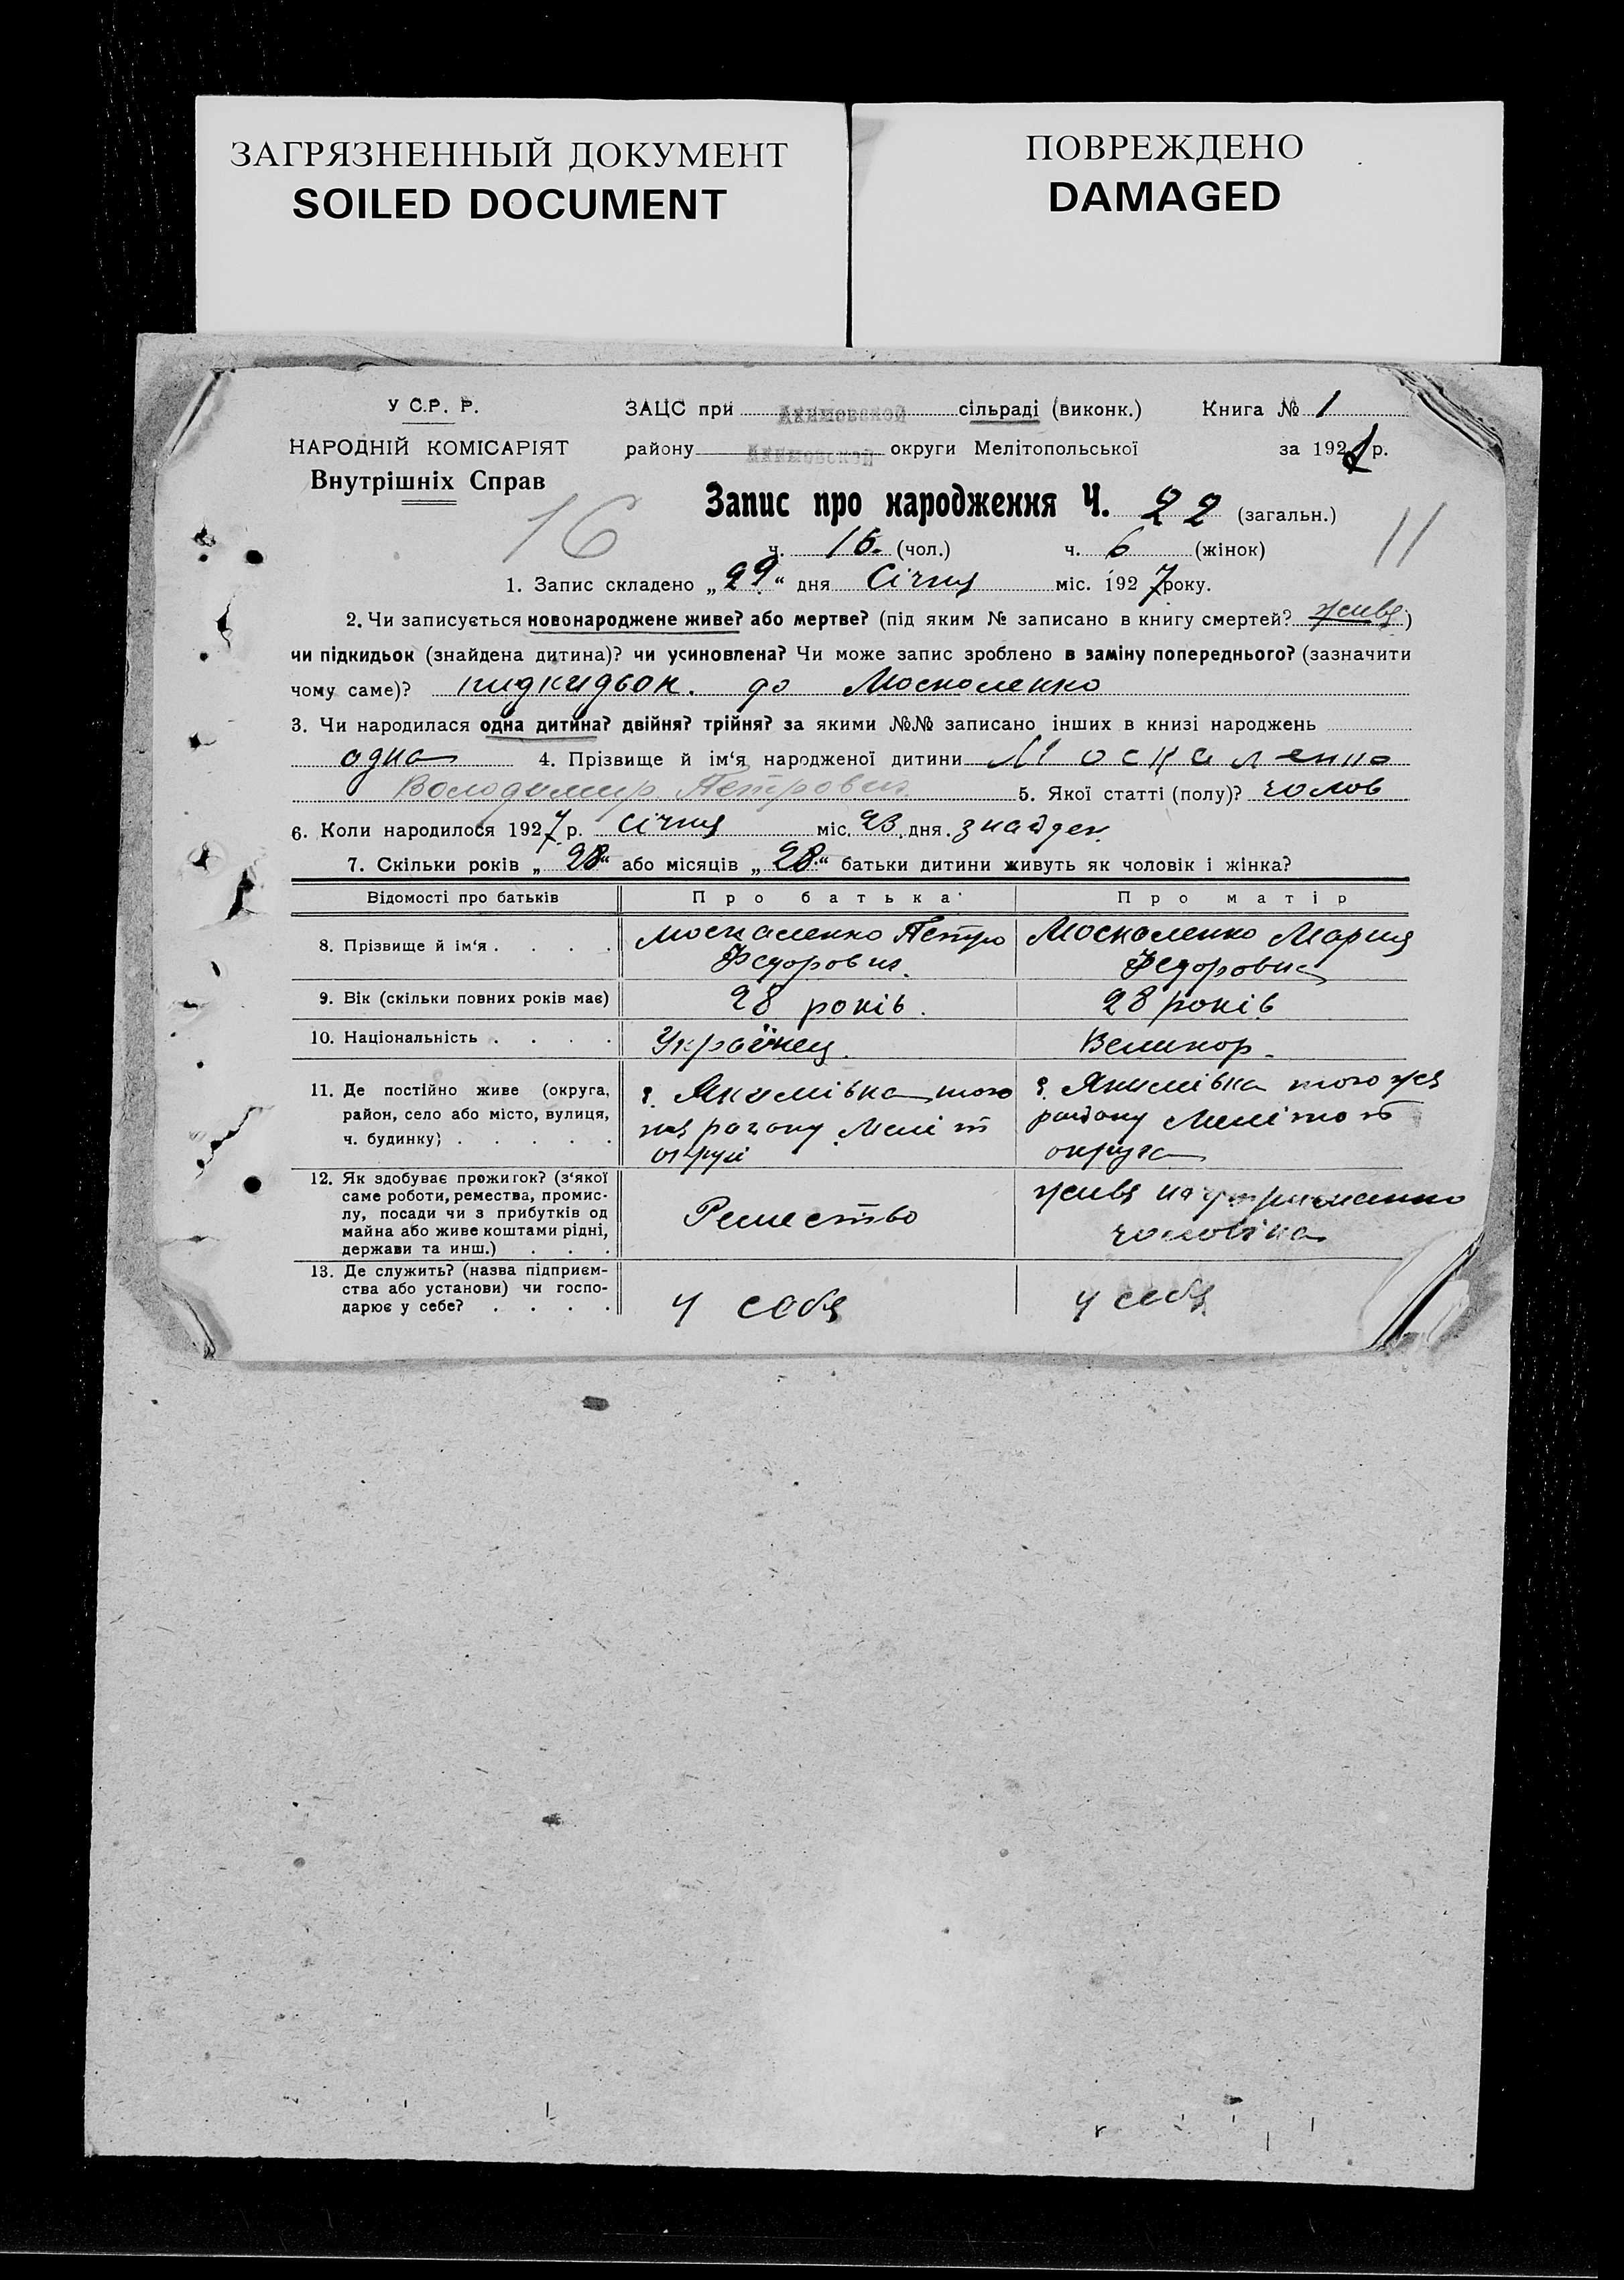 ЗАГРЯЗНЕННЫЙ ДОКУМЕНТ
SOILED DOCUMENT
ПОВРЕЖДЕНО
DAMAGED
У С.Р. Р.
НАРОДНІЙ КОМІСАРІЯТ
Внутрішніх Справ
ЗАЦС при Акимовской сільраді (виконк.) Книга № 1
району Акимовской округи Мелітопольської за 192 р.
Запис про народження Ч. 22 (загальн.)
16 11
ч. 16. (чол.) ч. 6 (жінок)
1. Запис складено „29“ дня Січня міс. 1927 року.
2. Чи записується новонароджене живе? або мертве? (під яким № записано в книгу смертей? живе)
чи підкидьок (знайдена дитина)? чи усиновлена? Чи може запис зроблено в заміну попереднього? (зазначити
чому саме)? пидкидьок. до Москаленко
3. Чи народилася одна дитина? двійня? трійня? за якими №№ записано інших в книзі народжень
одна 4. Прізвище й ім‘я народженої дитини Москаленко
Володимир Петрович 5. Якої статті (полу)? чолов
6. Коли народилося 1927 р. Січня міс. 23 дня. знайден.
7. Скільки років „28“ або місяців „28“ батьки дитини живуть як чоловік і жінка?
Відомості про батьків Про батька Про матір
8. Прізвище й ім‘я . . . . Москаленко Петро Федорович. Москаленко Мария Федоровна
9. Вік (скільки повних років має) 28 років. 28 років
10. Національність . . . . Украйнец. Великор.
11. Де постійно живе (округа,
район, село або місто, вулиця,
ч. будинку) . . . . .
с. Якимівка того
же району Меліт
округи
с. Якимівка того же
району Меліто
округа
12. Як здобуває прожиток? (з‘якої
саме роботи, ремества, промис-
лу, посади чи з прибутків од
майна або живе коштами рідні,
держави та инш.) . . .
Ремество
живе на
чоловіка
13. Де служить? (назва підприєм-
ства або установи) чи госпо-
дарює у себе? . . . .
у себе
у себе